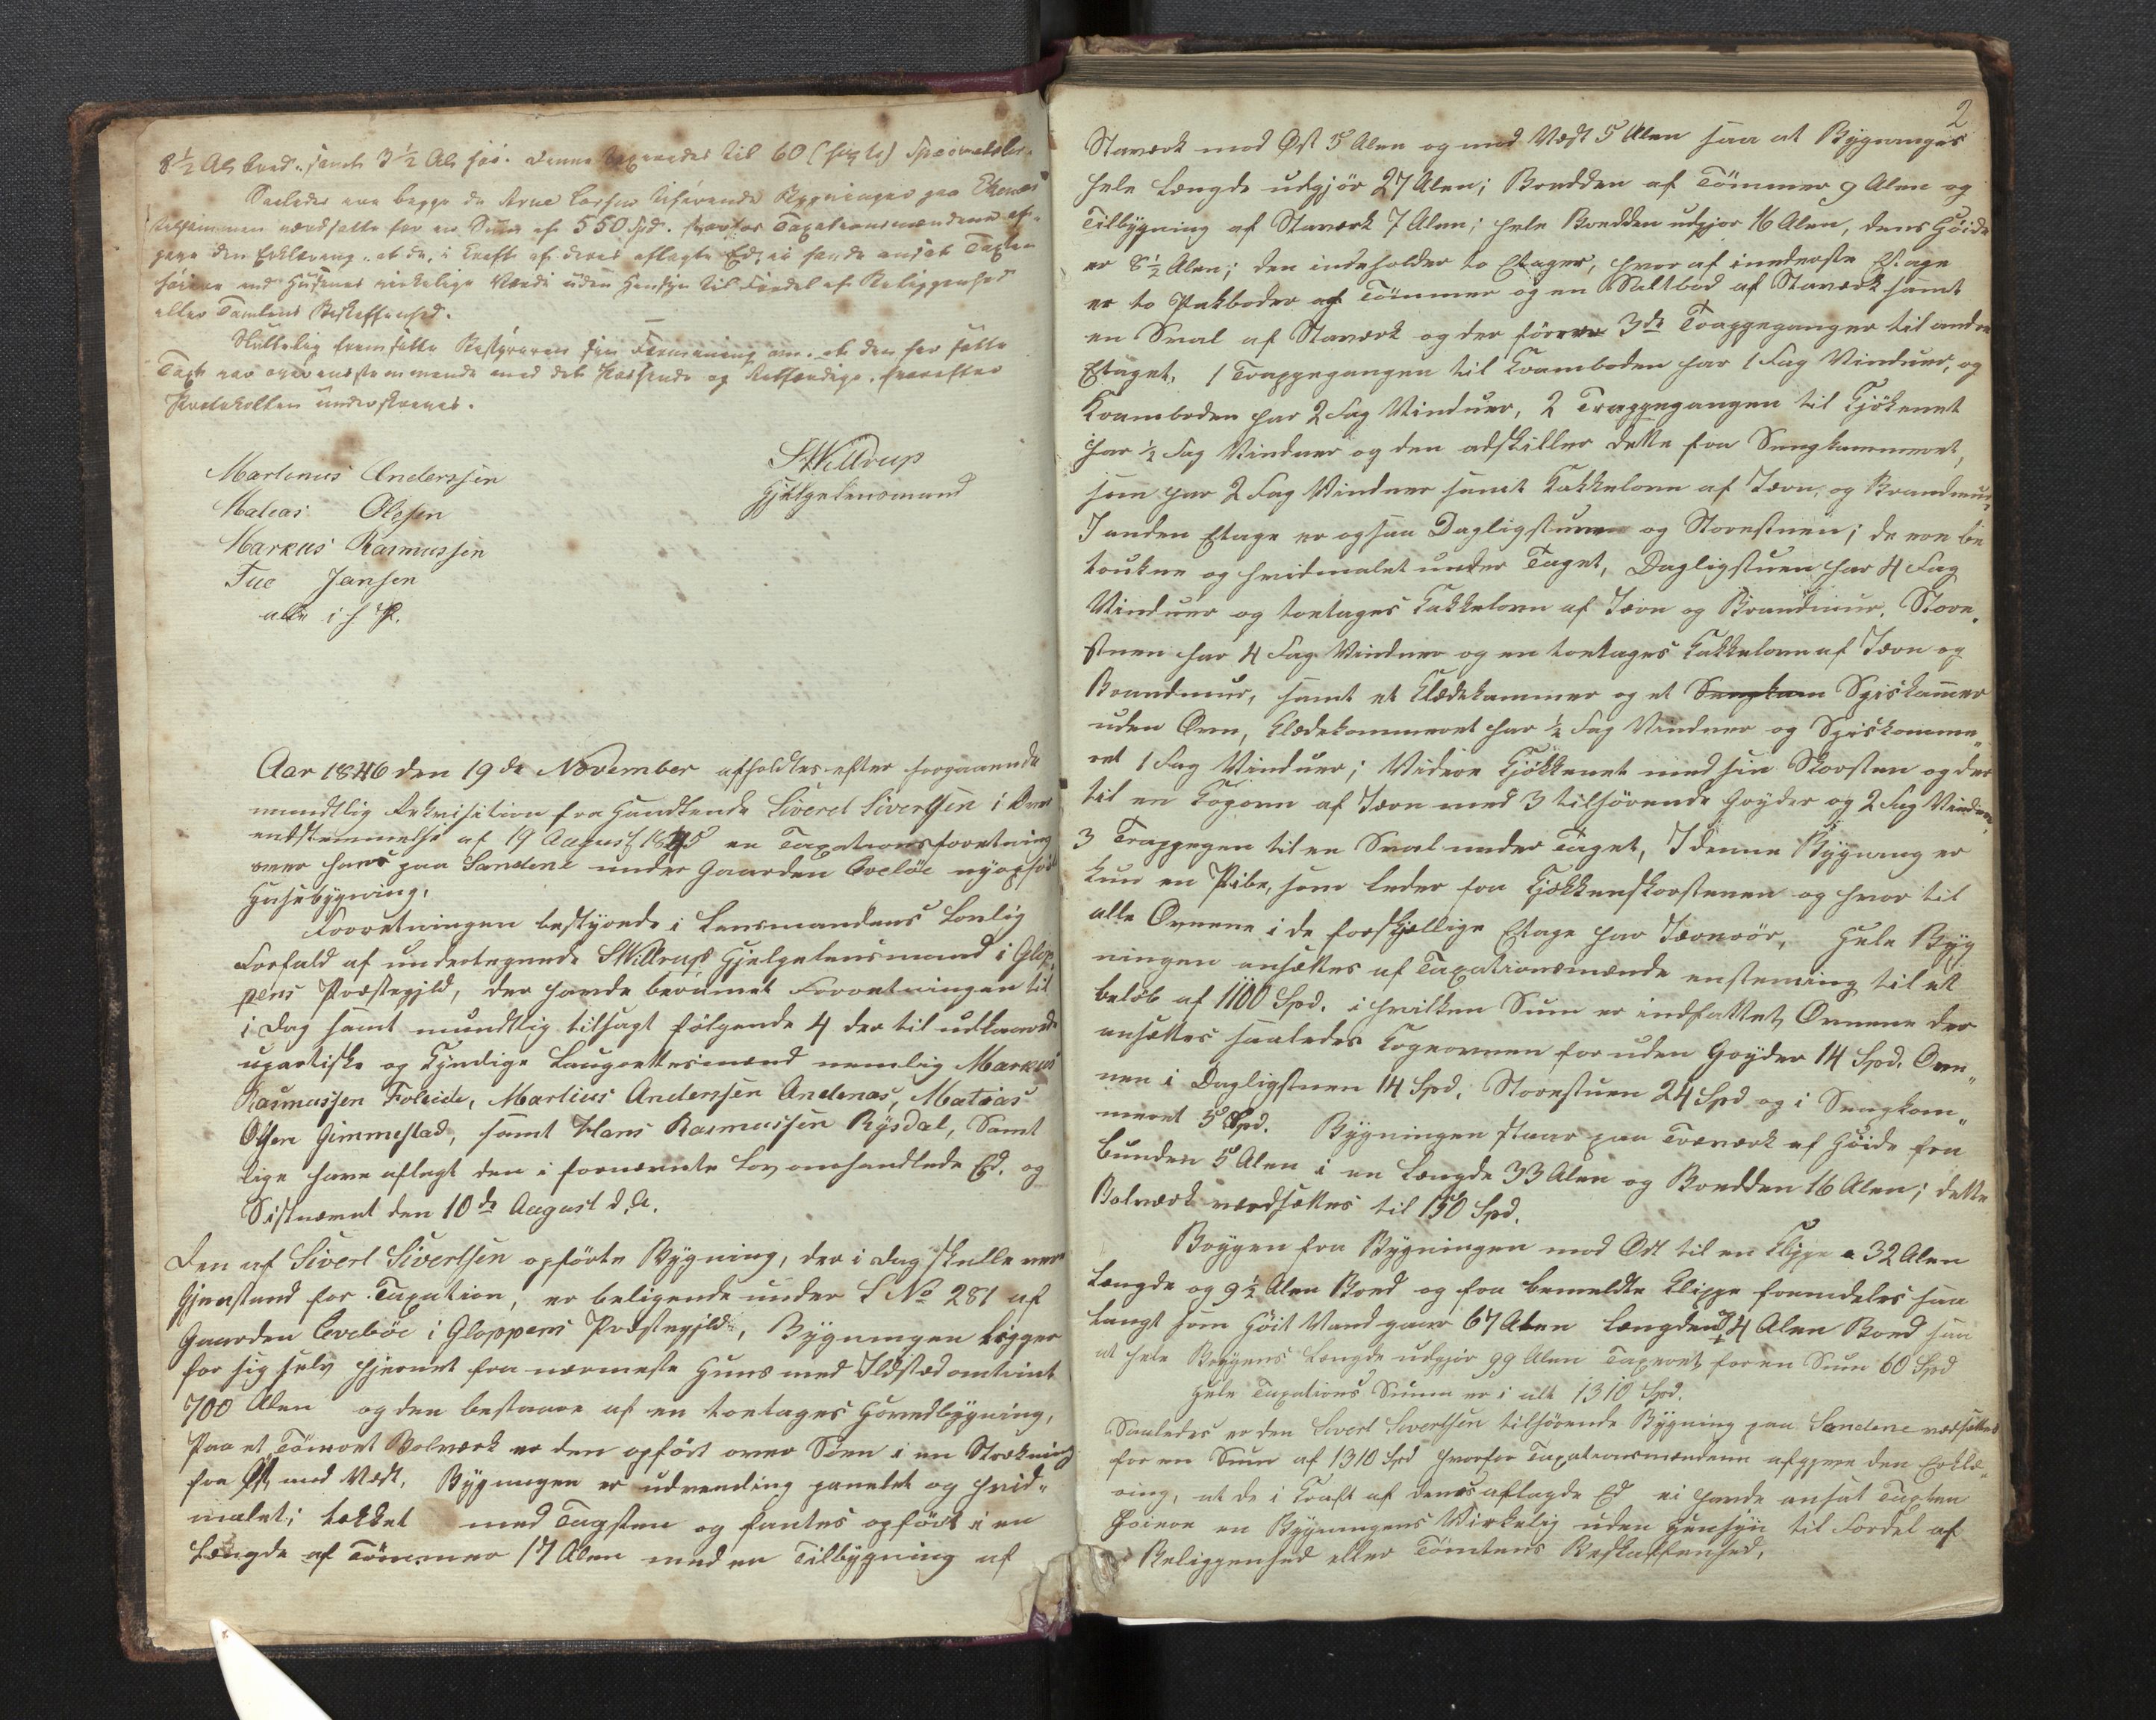 8½ Al: bred, samt 3½ Al: høi. Denne taxeredes til 60 (sexti) Speciedaler.
Saaledes ere begge de Arne Larsen tilhørende Bygninger paa Ekenæs
tilsammen værdsatte for en Sum af 550 Spd. hvorfor Taxationsmændene af-
gave den Erklæring, at de, i Kraft af deres aflagte Ed, ei havde ansat Taxten
høiere end Husenes virkelige Værdi uden Hensyn til Fordel af Beliggenhed
eller Tomtens Beskaffenhed.
Sluttelig fremsatte Bestyreren sin Formening om, at den her satte
Taxt var overensstemmende med det Passende og Retfærdige, hvorefter
Protokollen underskreves.
Martinus Anderssen
SWilldrup
Hjelpelensmand
Matias Olsen
Markus Rasmussen
Tue Jansen
alle i h. P.
Aar 1846 den 19de November afholdtes efter foregaaende
mundtlig Rekvisition fra Handlende Siverd Sivertsen i Over
endstemmelse af 19 August 1845 en Taxationsforretning
over hans paa Sandene under Gaarden Evebøe nyopført
Husebygning.
Forretningen bestyrede i Lensmandens Lovlig
Forfald af undertegnede SWilldrup Hjelpelensmand i Glop-
pens Præstegjeld, der havde berammet Forretningen til
i Dag samt mundtlig tilsagt følgende 4 der til udkaarede
upartiske og kyndige Laugrettesmænd nemlig Markus
Rasmussen Foleide, Martius Anderssen Andenæs, Matias
Olsen Gimmestad, samt Hans Rasmussen Rysdal, Samt
lige have aflagt den i fornævnte Lov omhandlede Ed, og
Sistnævnt den 10de August d. A.
Den af Sivert Sivertsen opførte Bygning, der i Dag skulle være
Gjenstand for Taxation, er beligende under L No 281 af
Gaarden Evebøe i Gloppens Præstegjeld, Bygningen ligger
for sig selv fjernet fra nærmeste Huus med Ildsted omtrent
700 Alen og den bestaaer af en toetages Hovedbygning,
Paa et Tømret Bolværk er den opført over Søen i en Strækning
fra Øst mod Vest, Bygningen er udvending panelet og hvid-
malet; tækket med Tagsten og fantes opført i en
Længde af Tømmer 17 Alen med en Tilbygning af
2
Staværk mod Øst 5 Alen og mod Vest 5 Alen saa at Bygningens
hele Længde udgjør 27 Alen; Bredden af Tømmer 9 Alen og
Tilbygning af Staværk 7 Alen; hele Bredden udgjør 16 Alen, dens Høide
er 8½ Alen; den indeholder to Etager, hvor af inederste Etage
er to Pakboder af Tømmer og en Saltbod af Staværk samt
en Sval af Staværk og der fører 3de Trappeganger til anden
Etaget, 1 Trappegangen til Kramboden har 1 Fag Vinduer, og
Kramboden har 2 Fag Vinduer, 2 Trappegangen til Kjøkenet
har ½ Fag Vinduer og den adskiller dette fra Sengkammeret,
som har 2 Fag Vinduer samt Kakkelovn af Jern, og Brandmur,
I anden Etage er ogsaa Dagligstuen og Storestuen; de ere be
trukne og hvidmalet under Taget, Dagligstuen har 4 Fag
Vinduer og toetages Kakkelovn af Jern og Brandmur, Store-
stuen har 4 Fag Vinduer og en toetages Kakkelovn af Jern og
Brandmur, samt et Klædekammer og et Sengkam Spiskammer
uden Ovn, Klædekammeret har ½ Fag Vinduer og Spiskamme-
ret 1 Fag Vinduer; Videre Kjøkkenet med sin Skorsten og der
til en Kogovn af Jern med 3 tilhørende Gryder og 2 Fag Vinduer,
3 Trappegen til en Sval under Taget, I denne Bygning er
kun en Pibe, som leder fra Kjøkkenskorstenen og hvor til
alle Ovnene i de forskjellige Etage har Jernrør, Hele Byg
ningen ansættes af Taxationsmænde enstemig til et
beløb af 1100 Spd. i hvilken Sum er indfattet Ovnene der
ansættes saaledes Kogeovnen for uden Gryder 14 Spd. Ovn-
nen i Dagligstuen 14 Spd, Storestuen 24 Spd og i Sengkam-
meret 5 Spd. Bygningen staar paa Træværk af Høide fra
bunden 5 Alen i en Længde 33 Alen og Bredden 16 Alen; dette
Bolværk værdsættes til 150 Spd.
Bryggen fra Bygningen mod Øst til en Klippe a 32 Alen
Længde og 9½ Alen Bred og fra bemeldte Klippe fremdeles saa
langt som Høit Vand gaar 67 Alen Længden 4 Alen Bred saa
at hele Bryggens Længde udgjør 99 Alen Taxeret for en Sum 60 Spd
Hele Taxations Summa er i alt 1310 Spd.
Saaledes er den Sivert Sivertsen tilhørende Bygning paa Sandene værdsættes
for en Sum af 1310 Spd hvorfor Taxationsmændene afgjøre den Erklæ-
ring, at de i Kraft af deres aflagde Ed ei havde ansat Taxten
høiere en Bygningens Virkelig uden Hensyn til Fordel af
Beliggenhed eller Tomtens Beskaffenhed.